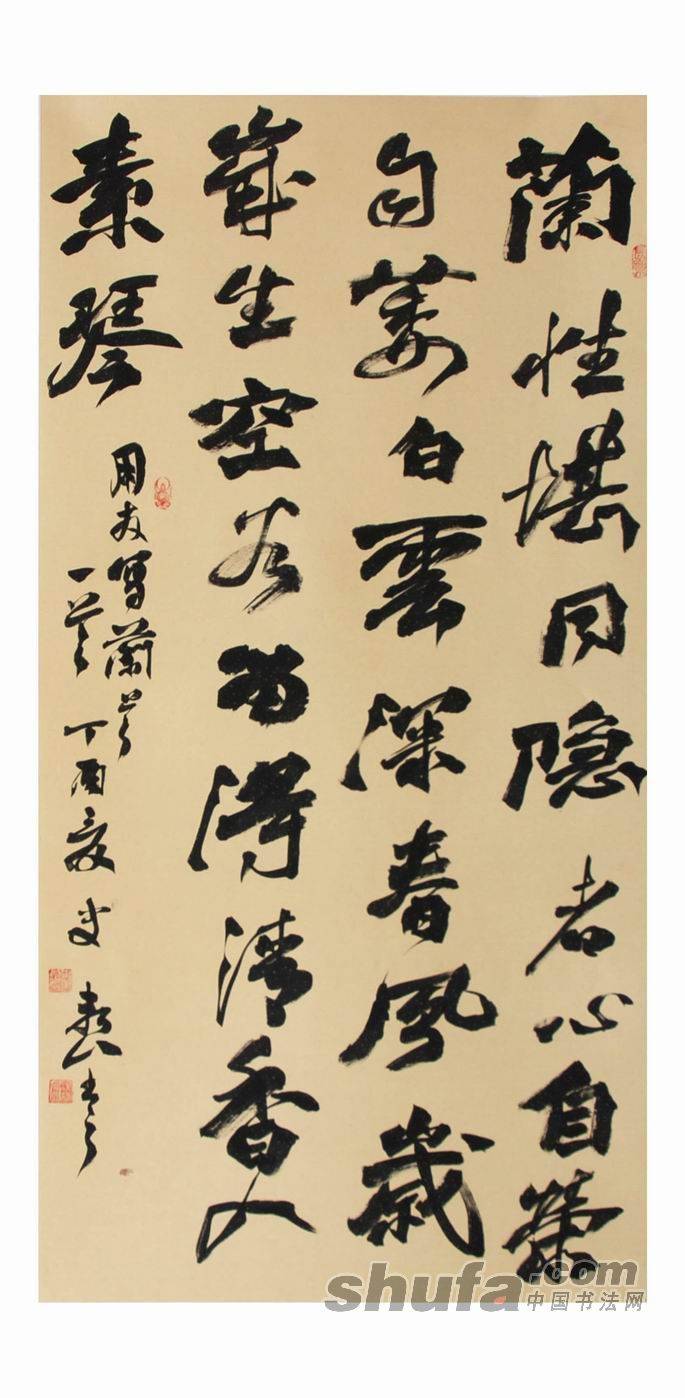 蘭性堪同隐者心自榮
自萎白雲深春風歲
歲生空谷留得清香入
素琴
寫蘭
丁酉夏
shufa.com
中国书法网